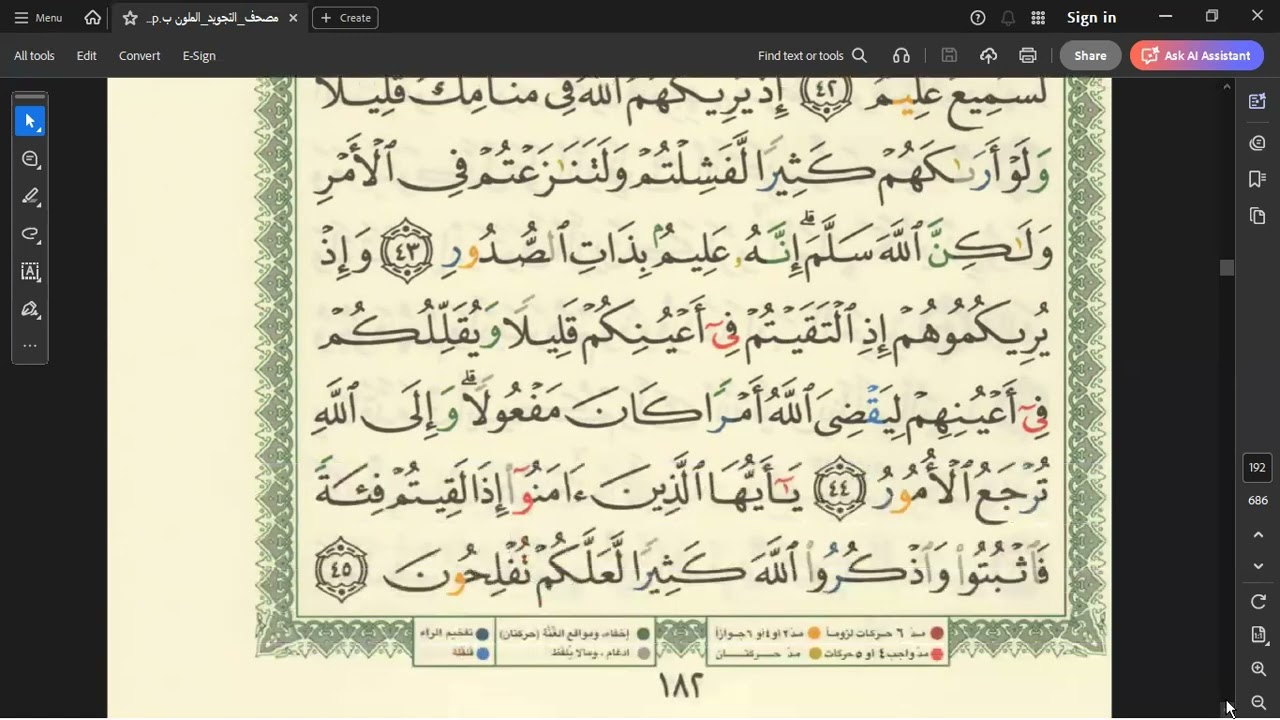 Menu
مصحف_التجويد_الملون ب.p...
Create
Sign in
All tools
Edit
Convert
E-Sign
Find text or tools
Share
Ask AI Assistant
لَسَمِيعٌ عَلِيمٌ ٤٢ إِذْ يُرِيكَهُمُ ٱللَّهُ فِى مَنَامِكَ قَلِيلًا
وَلَوْ أَرَىٰكَهُمْ كَثِيرًا لَّفَشِلْتُمْ وَلَتَنَـٰزَعْتُمْ فِى ٱلْأَمْرِ
وَلَـٰكِنَّ ٱللَّهَ سَلَّمَ ۗ إِنَّهُۥ عَلِيمٌۢ بِذَاتِ ٱلصُّدُورِ ٤٣ وَإِذْ
يُرِيكُمُوهُمْ إِذِ ٱلْتَقَيْتُمْ فِىٓ أَعْيُنِكُمْ قَلِيلًا وَيُقَلِّلُكُمْ
فِىٓ أَعْيُنِهِمْ لِيَقْضِىَ ٱللَّهُ أَمْرًا كَانَ مَفْعُولًا ۗ وَإِلَى ٱللَّهِ
تُرْجَعُ ٱلْأُمُورُ ٤٤ يَـٰٓأَيُّهَا ٱلَّذِينَ ءَامَنُوٓا۟ إِذَا لَقِيتُمْ فِئَةً
فَٱثْبُتُوا۟ وَٱذْكُرُوا۟ ٱللَّهَ كَثِيرًا لَّعَلَّكُمْ تُفْلِحُونَ ٤٥
مدّ ٦ حركات لزوماً
مدّ ٢ أو ٤ أو ٦ جوازاً
إخفاء، ومواقع الغنّة (حركتان)
تفخيم الراء
مدّ واجب ٤ أو ٥ حركات
مدّ حركتان
ادغام ، ومالا يُلفظ
قلقلة
١٨٢
192
686